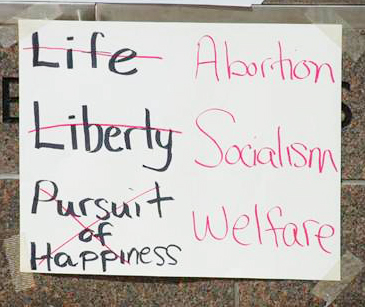 Life Abortion
Liberty Socialism
Pursuit Welfare
of
Happiness